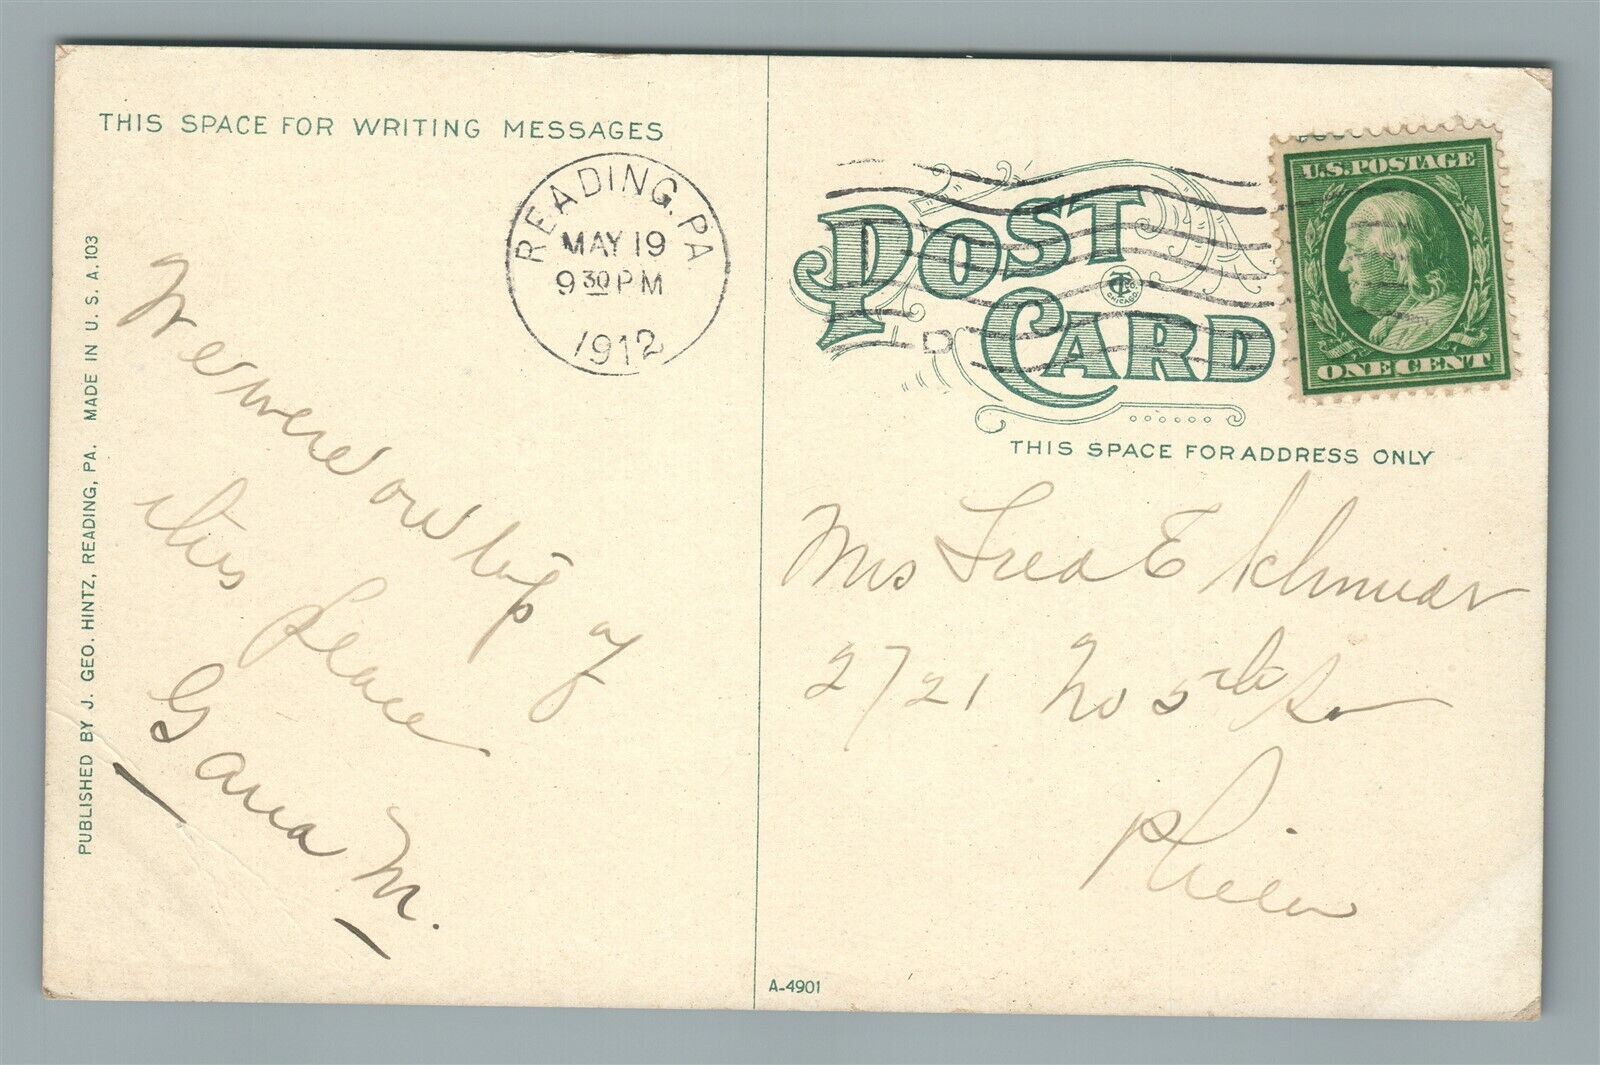 THIS SPACE FOR WRITING MESSAGES
READING, PA.
MAY 19
9 30 PM
1912
We were on top of
this place
M.
PUBLISHED BY J. GEO. HINTZ, READING, PA. MADE IN U. S. A. 103
U.S. POSTAGE
ONE CENT
POST CARD
CT CO.
CHICAGO
D
THIS SPACE FOR ADDRESS ONLY
Mrs Fred E
2721 No 5th St
Phila
A-4901